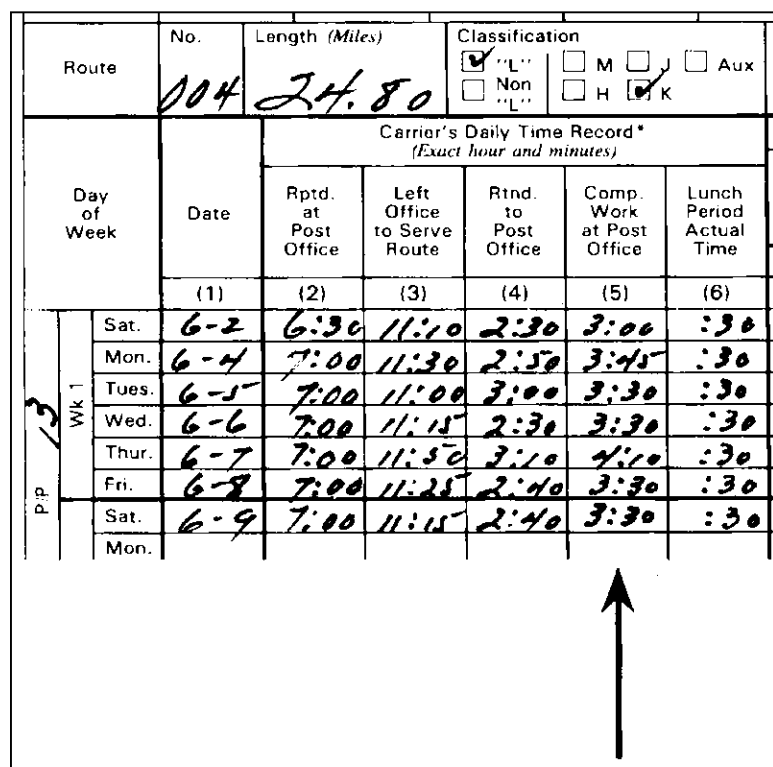 Route
No.
004
Length (Miles)
24.80
Classification
"L"
Non "L"
M J Aux
H K
Carrier's Daily Time Record*
(Exact hour and minutes)
Day of Week
Date
Rptd. at Post Office
Left Office to Serve Route
Rtnd. to Post Office
Comp. Work at Post Office
Lunch Period Actual Time
(1) (2) (3) (4) (5) (6)
P/P 13
Wk 1
Sat. 6-2 6:30 11:10 2:30 3:00 :30
Mon. 6-4 7:00 11:30 2:50 3:45 :30
Tues. 6-5 7:00 11:00 3:00 3:30 :30
Wed. 6-6 7:00 11:15 2:30 3:30 :30
Thur. 6-7 7:00 11:50 3:10 4:10 :30
Fri. 6-8 7:00 11:25 2:40 3:30 :30
Sat. 6-9 7:00 11:15 2:40 3:30 :30
Mon.